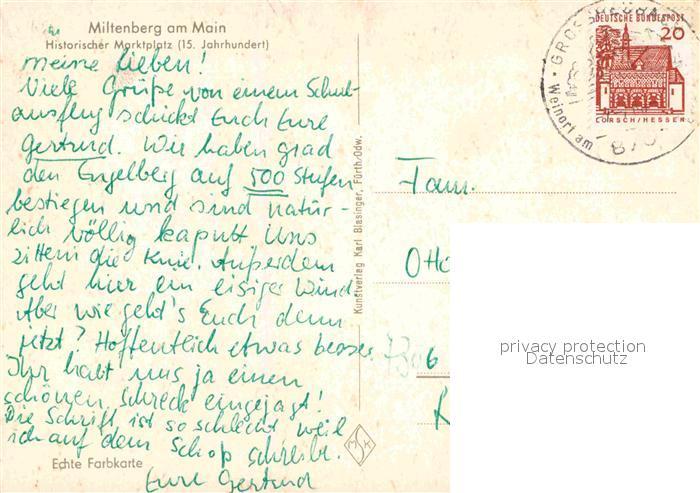 Miltenberg am Main
Historischer Marktplatz (15. Jahrhundert)
meine Lieben!
Viele Grüße von einem Schul-
ausflug schickt Euch Eure
Gertrud. Wir haben grad
den Engelberg auf 500 Stufen
bestiegen und sind natür-
lich völlig kaputt Uns
zittern die Knie. Außerdem
geht hier ein eisiger Wind.
Aber wie geht's Euch denn
jetzt? Hoffentlich etwas besser.
Ihr habt uns ja einen
schönen Schreck eingejagt!
Die Schrift ist so schlecht weil
ich auf dem Schoß schreibe.
Eure Gertrud
Echte Farbkarte
Kunstverlag Karl Blasinger, Fürth/Odw.
MKS
DEUTSCHE BUNDESPOST
20
LORSCH/HESSEN
Weinort am
Fam.
Otto
7306
K
privacy protection
Datenschutz